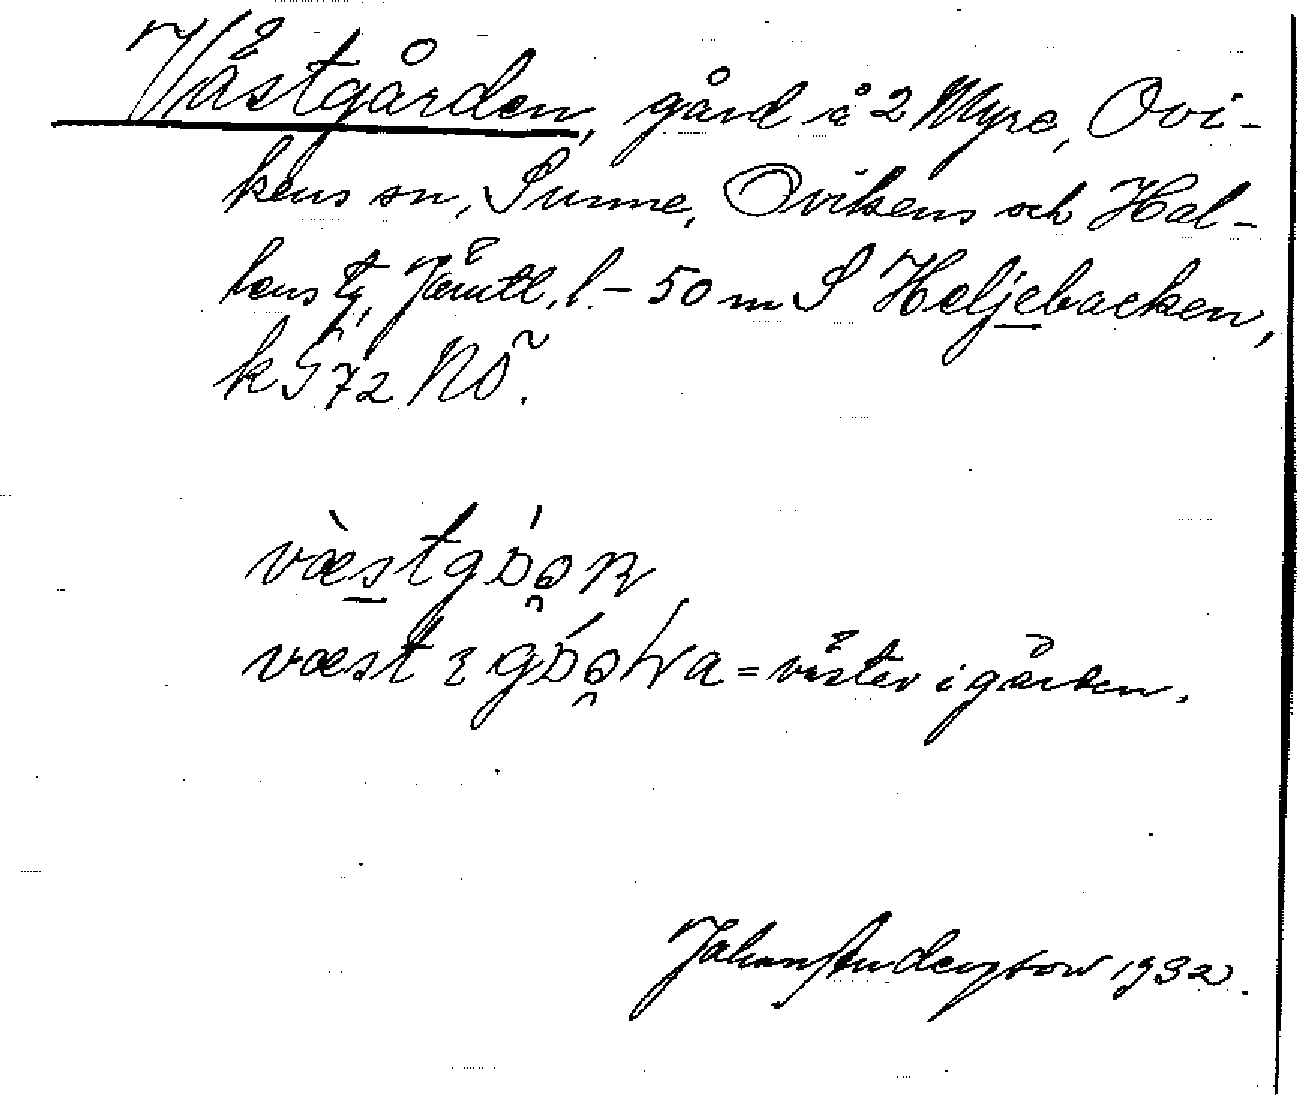 Västgården, gård å 2 Myre, Ovi-
kens sn, Sunne, Ovikens och Hal-
lens tg, Jämtl. l. – 50 m S Heljebacken,
k S 72 NÖ.
væstgɒ́ən
væst i gɒ́əra = väster i gården.
Johan Anderson 1932.